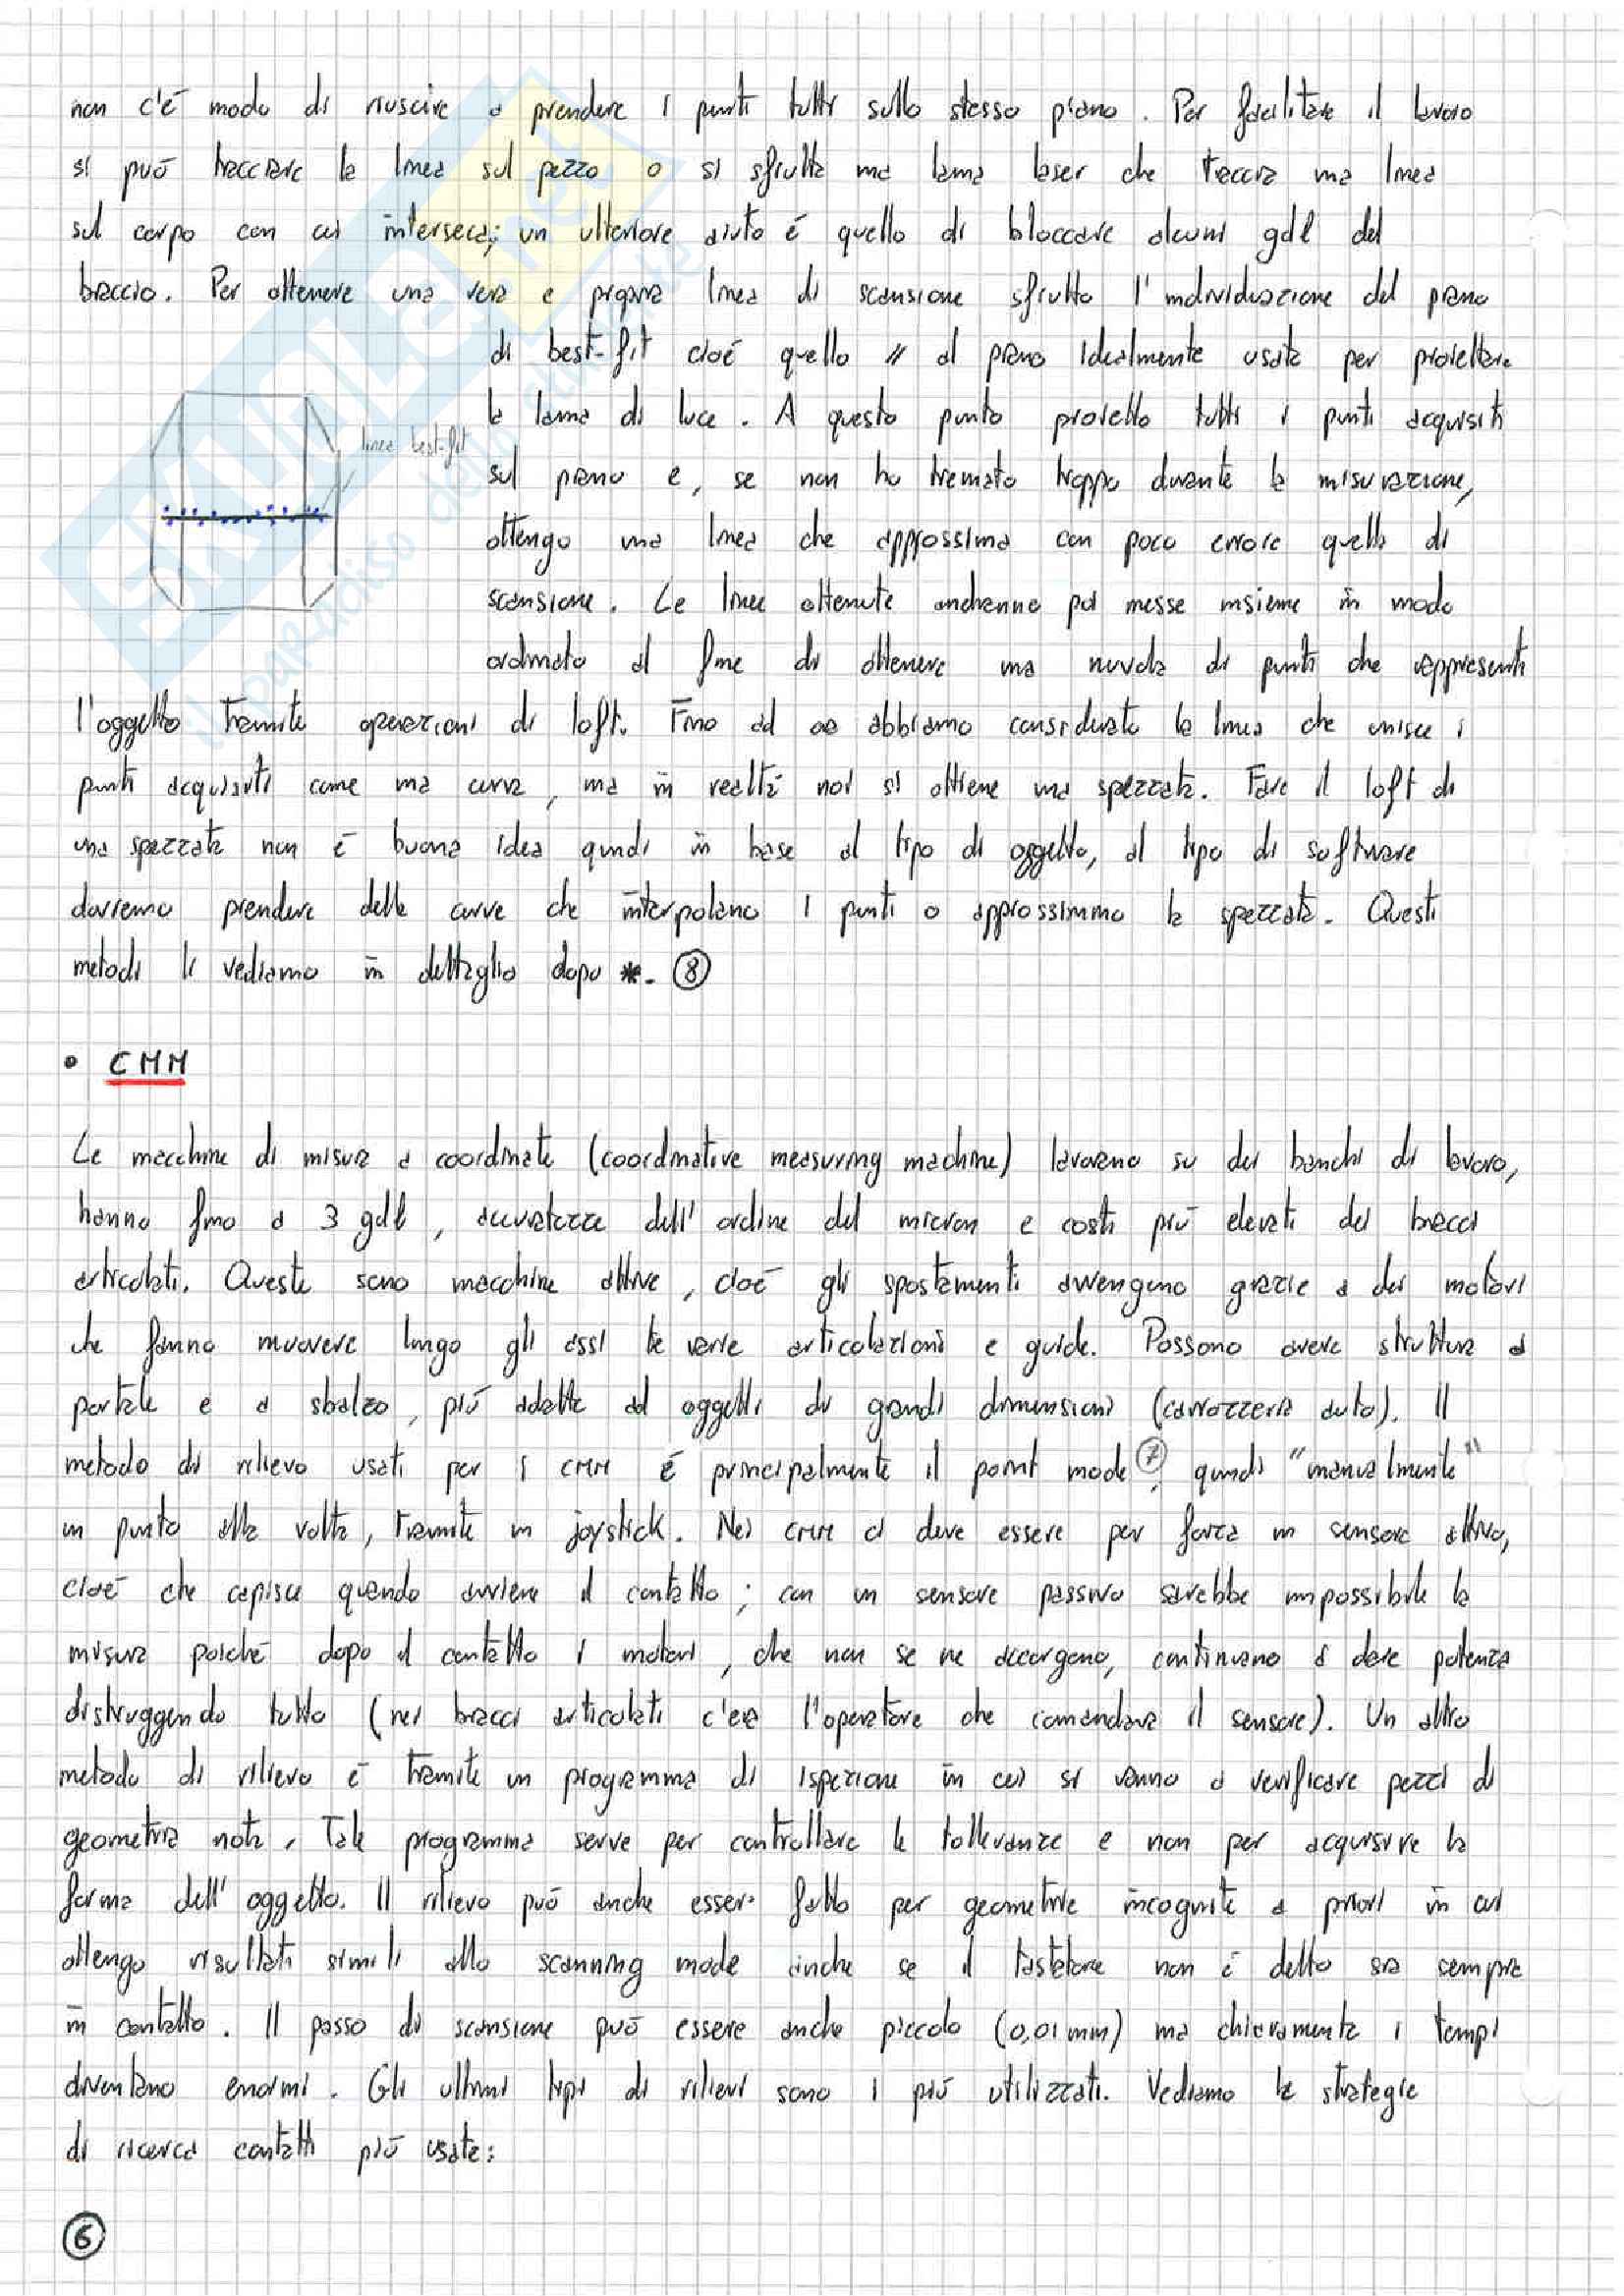 non c'è modo di riuscire a prendere i punti tutti sullo stesso piano. Per facilitare il lavoro
si può tracciare la linea sul pezzo o si sfrutta una lama laser che traccia una linea
sul corpo con cui interseca; un ulteriore aiuto è quello di bloccare alcuni gdl del
braccio. Per ottenere una vera e propria linea di scansione sfrutto l'individuazione del piano
di best-fit cioè quello // al piano idealmente usato per proiettare
la lama di luce. A questo punto proietto tutti i punti acquisiti
linea best-fit
sul piano e, se non ho tremato troppo durante la misurazione,
ottengo una linea che approssima con poco errore quella di
scansione. Le linee ottenute andranno poi messe insieme in modo
ordinato al fine di ottenere una nuvola di punti che rappresenti
l'oggetto tramite operazioni di loft. Fino ad ora abbiamo considerato la linea che unisce i
punti acquisiti come una curva, ma in realtà noi si ottiene una spezzata. Fare il loft di
una spezzata non è buona idea quindi in base al tipo di oggetto, al tipo di software
dovremo prendere delle curve che interpolano i punti o approssimino la spezzata. Questi
metodi li vediamo in dettaglio dopo *. ⑧
• CMM
Le macchine di misura a coordinate (coordinative measuring machine) lavorano su dei banchi di lavoro,
hanno fino a 3 gdl, accuratezze dell'ordine del micron e costi più elevati dei bracci
articolati. Queste sono macchine attive, cioè gli spostamenti avvengono grazie a dei motori
che fanno muovere lungo gli assi le varie articolazioni e guide. Possono avere struttura a
portale e a sbalzo, più adatte ad oggetti di grandi dimensioni (carrozzeria auto). Il
metodo di rilievo usati per i CMM è principalmente il point mode ⑦, quindi "manualmente"
un punto alla volta, tramite un joystick. Nei CMM ci deve essere per forza un sensore attivo,
cioè che capisce quando avviene il contatto; con un sensore passivo sarebbe impossibile la
misura poiché dopo il contatto i motori, che non se ne accorgono, continuano a dare potenza
distruggendo tutto (nei bracci articolati c'era l'operatore che comandava il sensore). Un altro
metodo di rilievo è tramite un programma di ispezione in cui si vanno a verificare pezzi di
geometria nota. Tale programma serve per controllare le tolleranze e non per acquisire la
forma dell'oggetto. Il rilievo può anche esser fatto per geometrie incognite a priori in cui
ottengo risultati simili allo scanning mode anche se il tastatore non è detto sia sempre
in contatto. Il passo di scansione può essere anche piccolo (0,01mm) ma chiaramente i tempi
diventano enormi. Gli ultimi tipi di rilievi sono i più utilizzati. Vediamo le strategie
di ricerca contatti più usate:
⑥